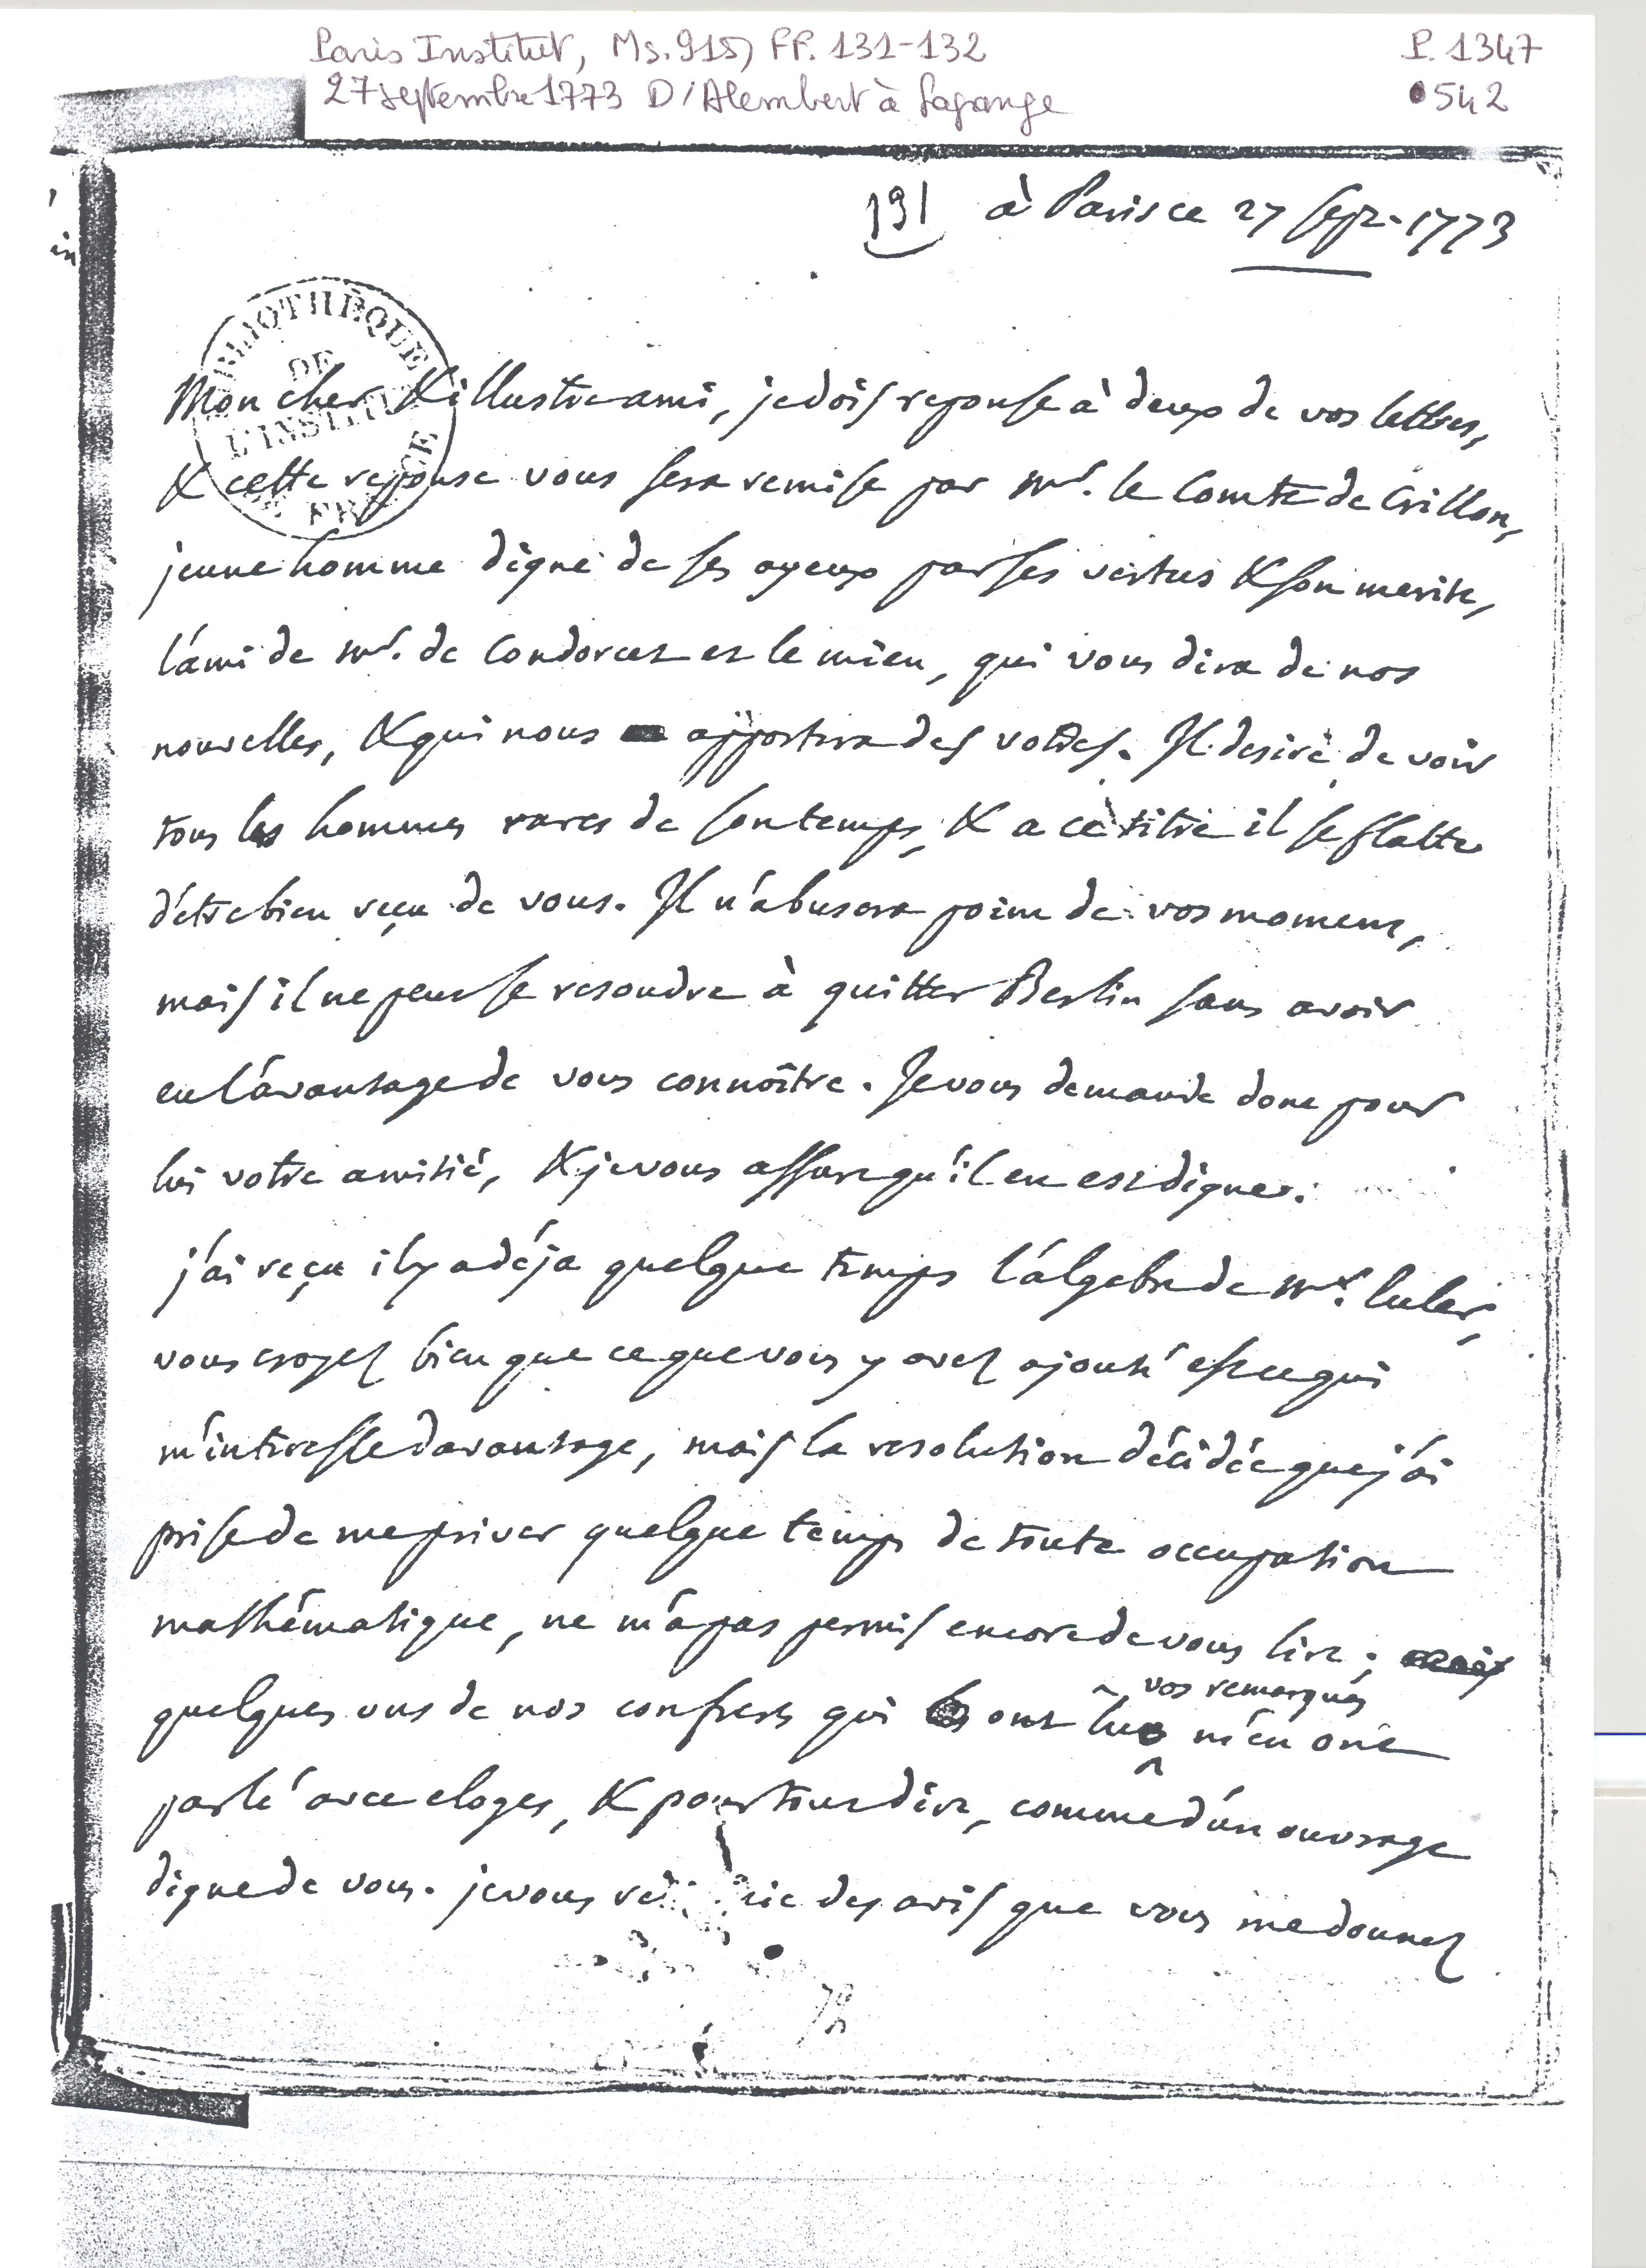 Paris Institut, Ms. 915, FF. 131-132
P. 1347
27 septembre 1773 D'Alembert à Lagrange
542
131 à Paris ce 27 sept. 1773
BIBLIOTHÈQUE DE L'INSTITUT DE FRANCE
Mon cher & illustre ami, je dois reponse à deux de vos lettres,
& cette reponse vous sera remise par Mr. le Comte de Crillon,
jeune homme digne de ses ayeux par ses vertus & son merite,
l'ami de Mr. de Condorcet et le mien, qui vous dira de nos
nouvelles, & qui nous apportera des votres. Il desire de voir
tous les hommes rares de son temps, & a ce titre il se flatte
d'etre bien reçu de vous. Il n'abusera point de vos momens,
mais il ne peut se resoudre à quitter Berlin sans avoir
eu l'avantage de vous connoître. Je vous demande donc pour
lui votre amitié, & je vous assure qu'il en est digne.
j'ai reçu il y a déja quelque temps l'algebre de Mr. Euler,
vous croyez bien que ce que vous y avez ajouté est ce qui
m'interesse davantage, mais la resolution décidée que j'ai
prise de me priver quelque temps de toute occupation
mathématique, ne m'a pas permis encore de vous lire; mais
vos remarques
quelques uns de nos confreres qui ont lu m'en ont
parlé avec eloges, & pour tout dire, comme d'un ouvrage
digne de vous. je vous remercie des avis que vous me donnez